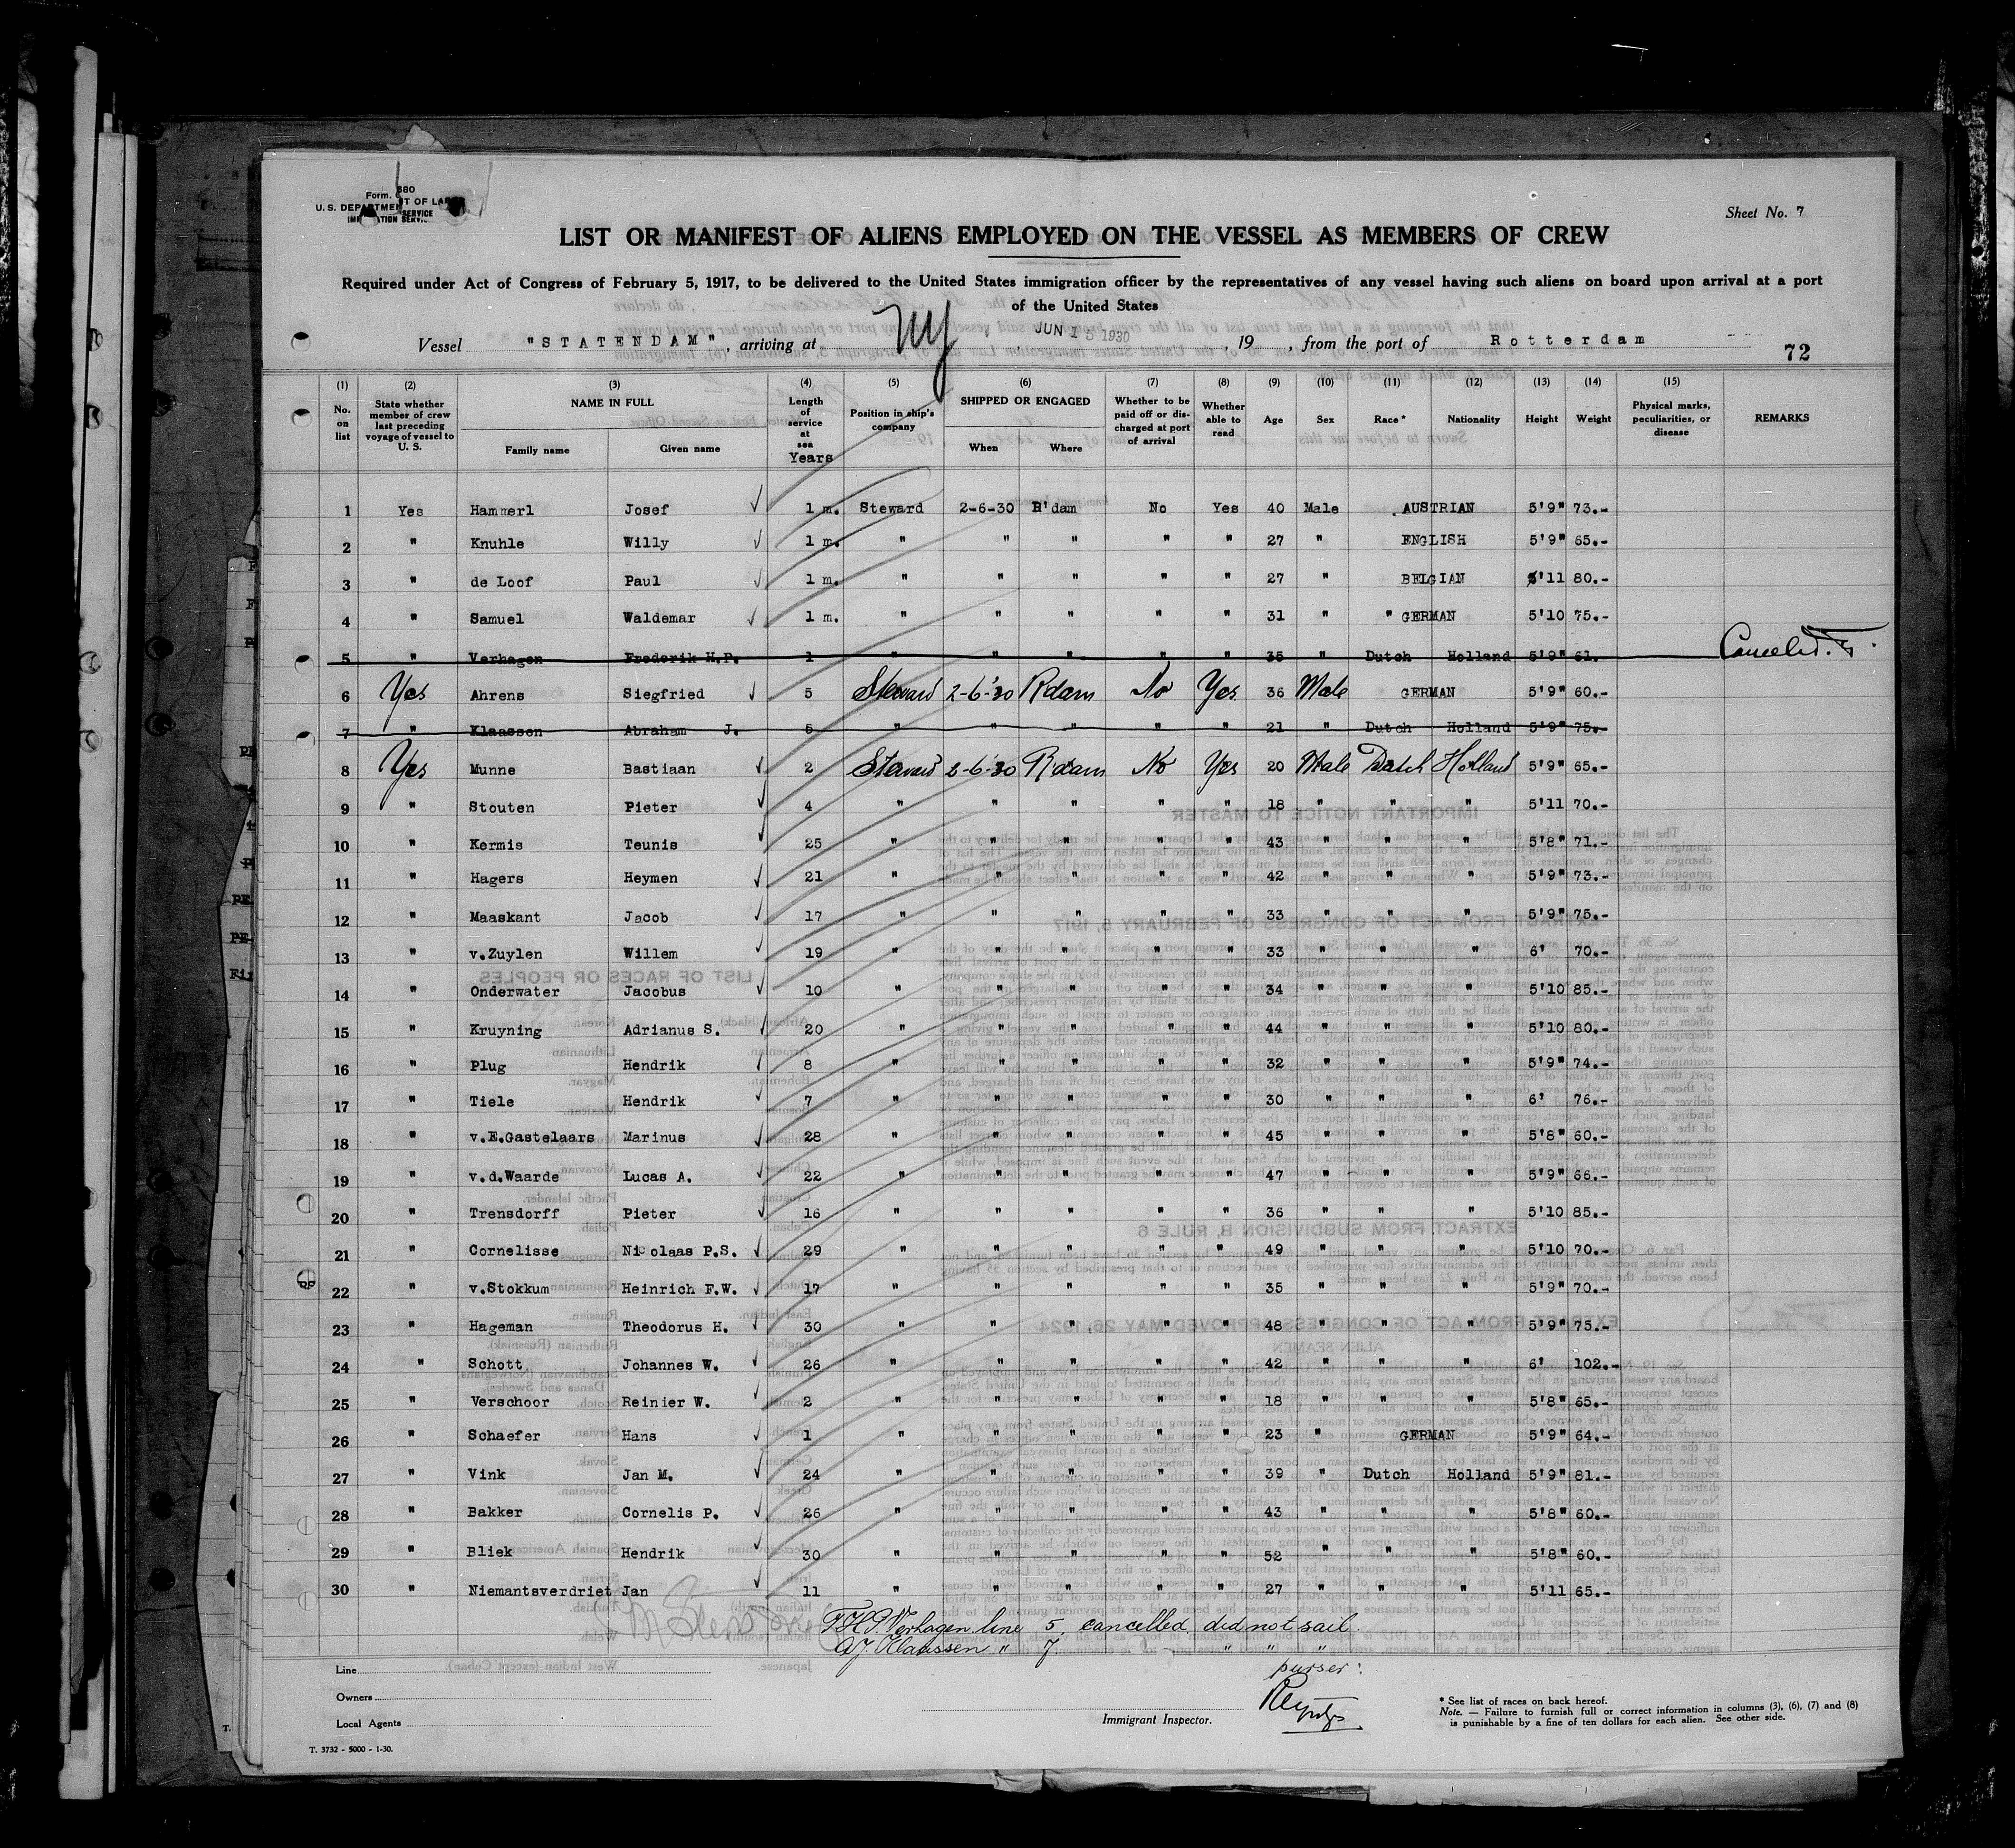 Form. 680
U. S. DEPARTMENT OF LABOR
IMMIGRATION SERVICE
Sheet No. 7
LIST OR MANIFEST OF ALIENS EMPLOYED ON THE VESSEL AS MEMBERS OF CREW
Required under Act of Congress of February 5, 1917, to be delivered to the United States immigration officer by the representatives of any vessel having such aliens on board upon arrival at a port
of the United States
Vessel "STATENDAM", arriving at NY, JUN 15 1930, 19 , from the port of Rotterdam
72
(1) (2) (3) (4) (5) (6) (7) (8) (9) (10) (11) (12) (13) (14) (15)
No. on list | State whether member of crew last preceding voyage of vessel to U. S. | NAME IN FULL Family name Given name | Length of service at sea Years | Position in ship's company | SHIPPED OR ENGAGED When Where | Whether to be paid off or discharged at port of arrival | Whether able to read | Age | Sex | Race* | Nationality | Height | Weight | Physical marks, peculiarities, or disease | REMARKS
1 Yes Hammerl Josef ✓ 1 m. Steward 2-6-30 R'dam No Yes 40 Male AUSTRIAN 5'9" 73.-
2 " Knuhle Willy ✓ 1 m. " " " " " 27 " ENGLISH 5'9" 65.-
3 " de Loof Paul ✓ 1 m. " " " " " 27 " BELGIAN 5'11 80.-
4 " Samuel Waldemar ✓ 1 m. " " " " " 31 " " GERMAN 5'10 75.-
5 " Verhagen Frederik H.P. 1 " " " " " 35 " Dutch Holland 5'9" 61.- Canceled.
6 Yes Ahrens Siegfried ✓ 5 Steward 2-6-'30 Rdam No Yes 36 Male GERMAN 5'9" 60.-
7 " Klaassen Abraham J. 5 " " " " " 21 " Dutch Holland 5'9" 75.-
8 Yes Munne Bastiaan ✓ 2 Steward 2-6-'30 Rdam No Yes 20 Male Dutch Holland 5'9" 65.-
9 " Stouten Pieter ✓ 4 " " " " " 18 " " " 5'11 70.-
10 " Kermis Teunis ✓ 25 " " " " " 43 " " " 5'8" 71.-
11 " Hagers Heymen ✓ 21 " " " " " 42 " " " 5'9" 73.-
12 " Maaskant Jacob ✓ 17 " " " " " 33 " " " 5'9" 75.-
13 " v.Zuylen Willem ✓ 19 " " " " " 33 " " " 6' 70.-
14 " Onderwater Jacobus ✓ 10 " " " " " 34 " " " 5'10 85.-
15 " Kruyning Adrianus S. ✓ 20 " " " " " 44 " " " 5'10 80.-
16 " Plug Hendrik ✓ 8 " " " " " 32 " " " 5'9" 74.-
17 " Tiele Hendrik ✓ 7 " " " " " 30 " " " 6' 76.-
18 " v.E.Gastelaars Marinus ✓ 28 " " " " " 45 " " " 5'8" 60.-
19 " v.d.Waarde Lucas A. ✓ 22 " " " " " 47 " " " 5'9" 66.-
20 " Trensdorff Pieter ✓ 16 " " " " " 36 " " " 5'10 85.-
21 " Cornelisse Nicolaas P.S. ✓ 29 " " " " " 49 " " " 5'10 70.-
22 " v.Stokkum Heinrich F.W. ✓ 17 " " " " " 35 " " " 5'9" 70.-
23 " Hageman Theodorus H. ✓ 30 " " " " " 48 " " " 5'9" 75.-
24 " Schott Johannes W. ✓ 26 " " " " " 42 " " " 6' 102.-
25 " Verschoor Reinier W. ✓ 2 " " " " " 18 " " " 5'8" 65.-
26 " Schaefer Hans ✓ 1 " " " " " 23 " GERMAN 5'9" 64.-
27 " Vink Jan M. ✓ 24 " " " " " 39 " Dutch Holland 5'9" 81.-
28 " Bakker Cornelis P. ✓ 26 " " " " " 43 " " " 5'8" 60.-
29 " Bliek Hendrik ✓ 30 " " " " " 52 " " " 5'8" 60.-
30 " Niemantsverdriet Jan ✓ 11 " " " " " 27 " " " 5'11 65.-
F.H.P. Verhagen line 5, cancelled did not sail.
A J Klaassen " 7 " " " "
purser:
Line
Owners
Local Agents
Immigrant Inspector.
* See list of races on back hereof.
Note. — Failure to furnish full or correct information in columns (3), (6), (7) and (8)
is punishable by a fine of ten dollars for each alien. See other side.
T. 3732 - 5000 - 1-30.